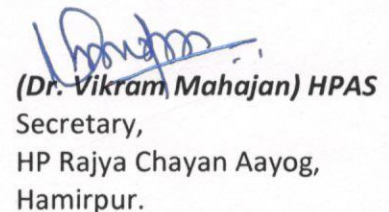 (Dr. Vikram Mahajan) HPAS
Secretary,
HP Rajya Chayan Aayog,
Hamirpur.